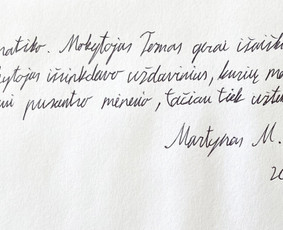 matiko. Mokytojas Tomas gerai išaišk
ytojas išrinkdavo uždavinius, kurių m
pusantro mėnesio, tačiau tiek užte
Martynas M.
20